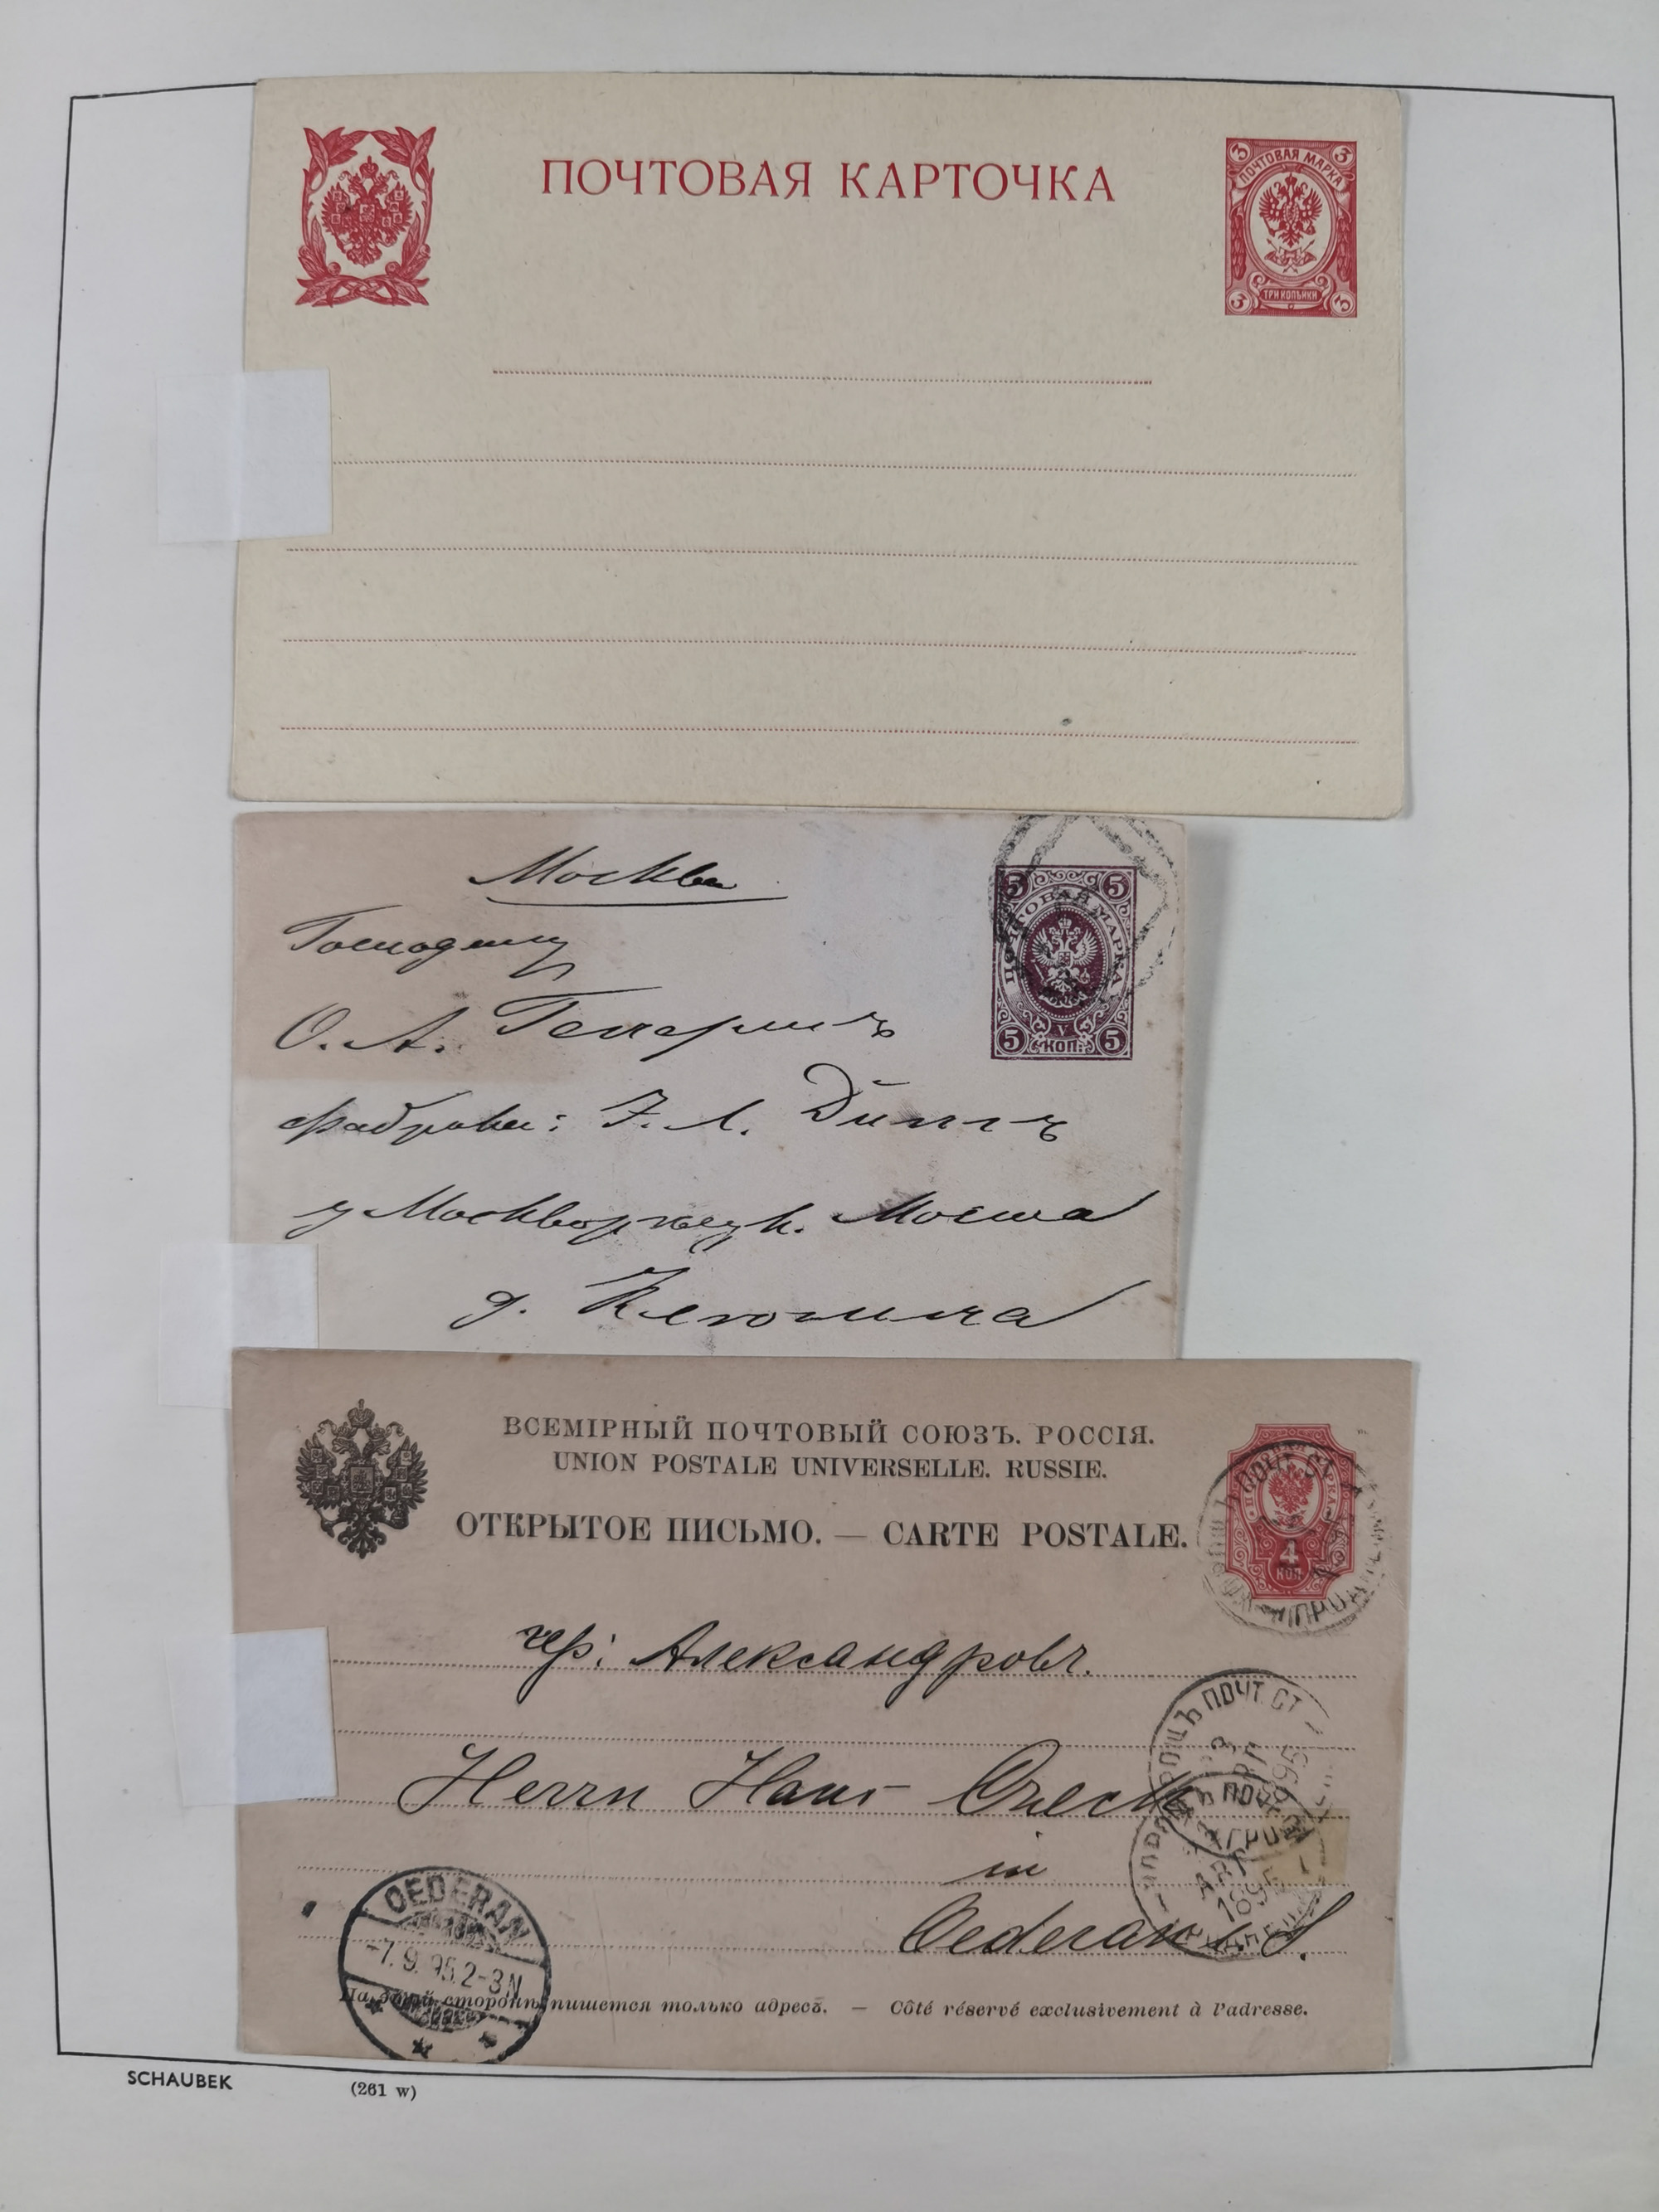 ПОЧТОВАЯ КАРТОЧКА
3 3
ПОЧТОВАЯ МАРКА
ТРИ КОПѢЙКИ
3 3
Москва
Господину
О. А.
5 5
ПОЧТОВАЯ МАРКА
V
5 КОП. 5
у Москворѣцк. Моста
д.
ВСЕМІРНЫЙ ПОЧТОВЫЙ СОЮЗЪ. РОССІЯ.
UNION POSTALE UNIVERSELLE. RUSSIE.
ОТКРЫТОЕ ПИСЬМО. — CARTE POSTALE.
4
КОП
чр: Александровъ.
ПОЧТ. СТ
1895
Herrn Hans
in
Oederan i. S.
OEDERAN
-7. 9. 95. 2-3N
На этой сторонѣ пишется только адресъ. — Côté réservé exclusivement à l'adresse.
SCHAUBEK (261 w)